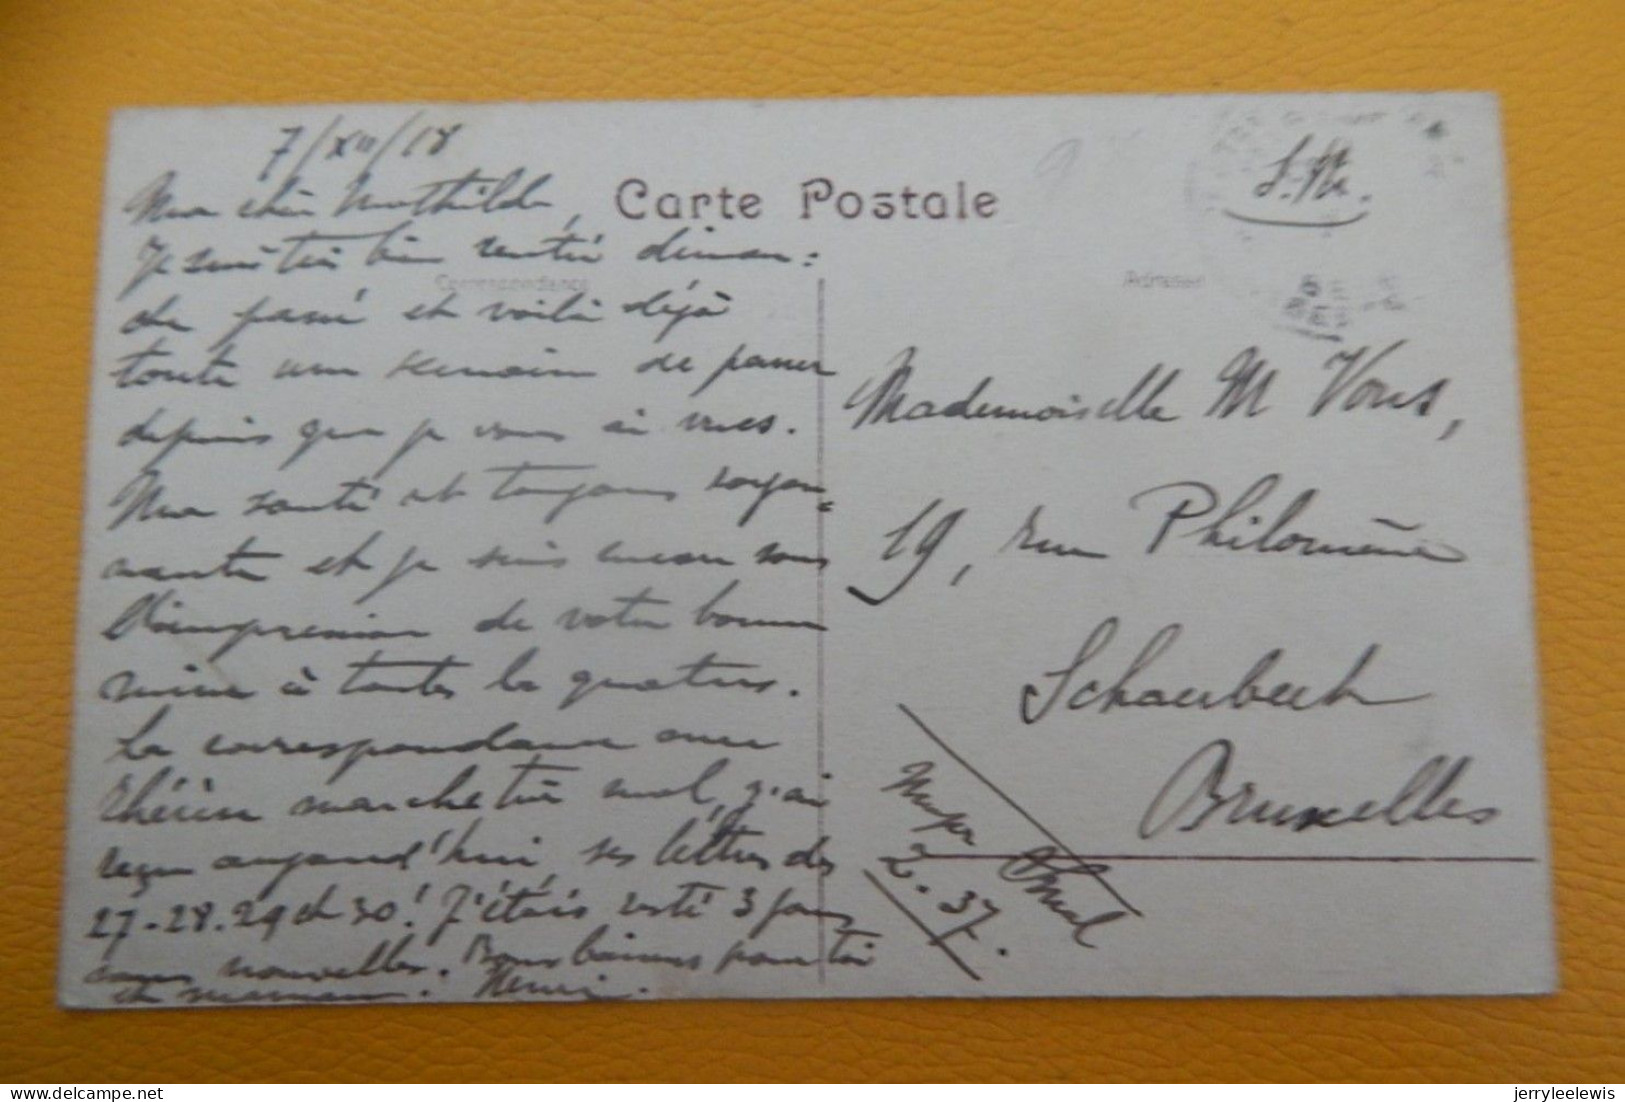 7/XII/18
Ma chère Mathilde,
Je suis très bien rentré diman=
che passé et voilà déjà
toute une semaine de passée
depuis que je vous ai vues.
Ma santé est toujours rayon=
nante et je suis encore sous
l'impression de votre bonne
mine à toutes les quatres.
La correspondance avec
Thérèse marche très mal, j'ai
reçu aujourd'hui ses lettres des
27-28.29 et 30! J'étais resté 3 jours
sans nouvelles. Bons baisers pour toi
et maman. Henri.
Carte Postale
Correspondance
Adresse
S.M.
Mademoiselle M Vons,
19, rue Philomène
Schaerbeek
Bruxelles
2.37.
jerryleelewis